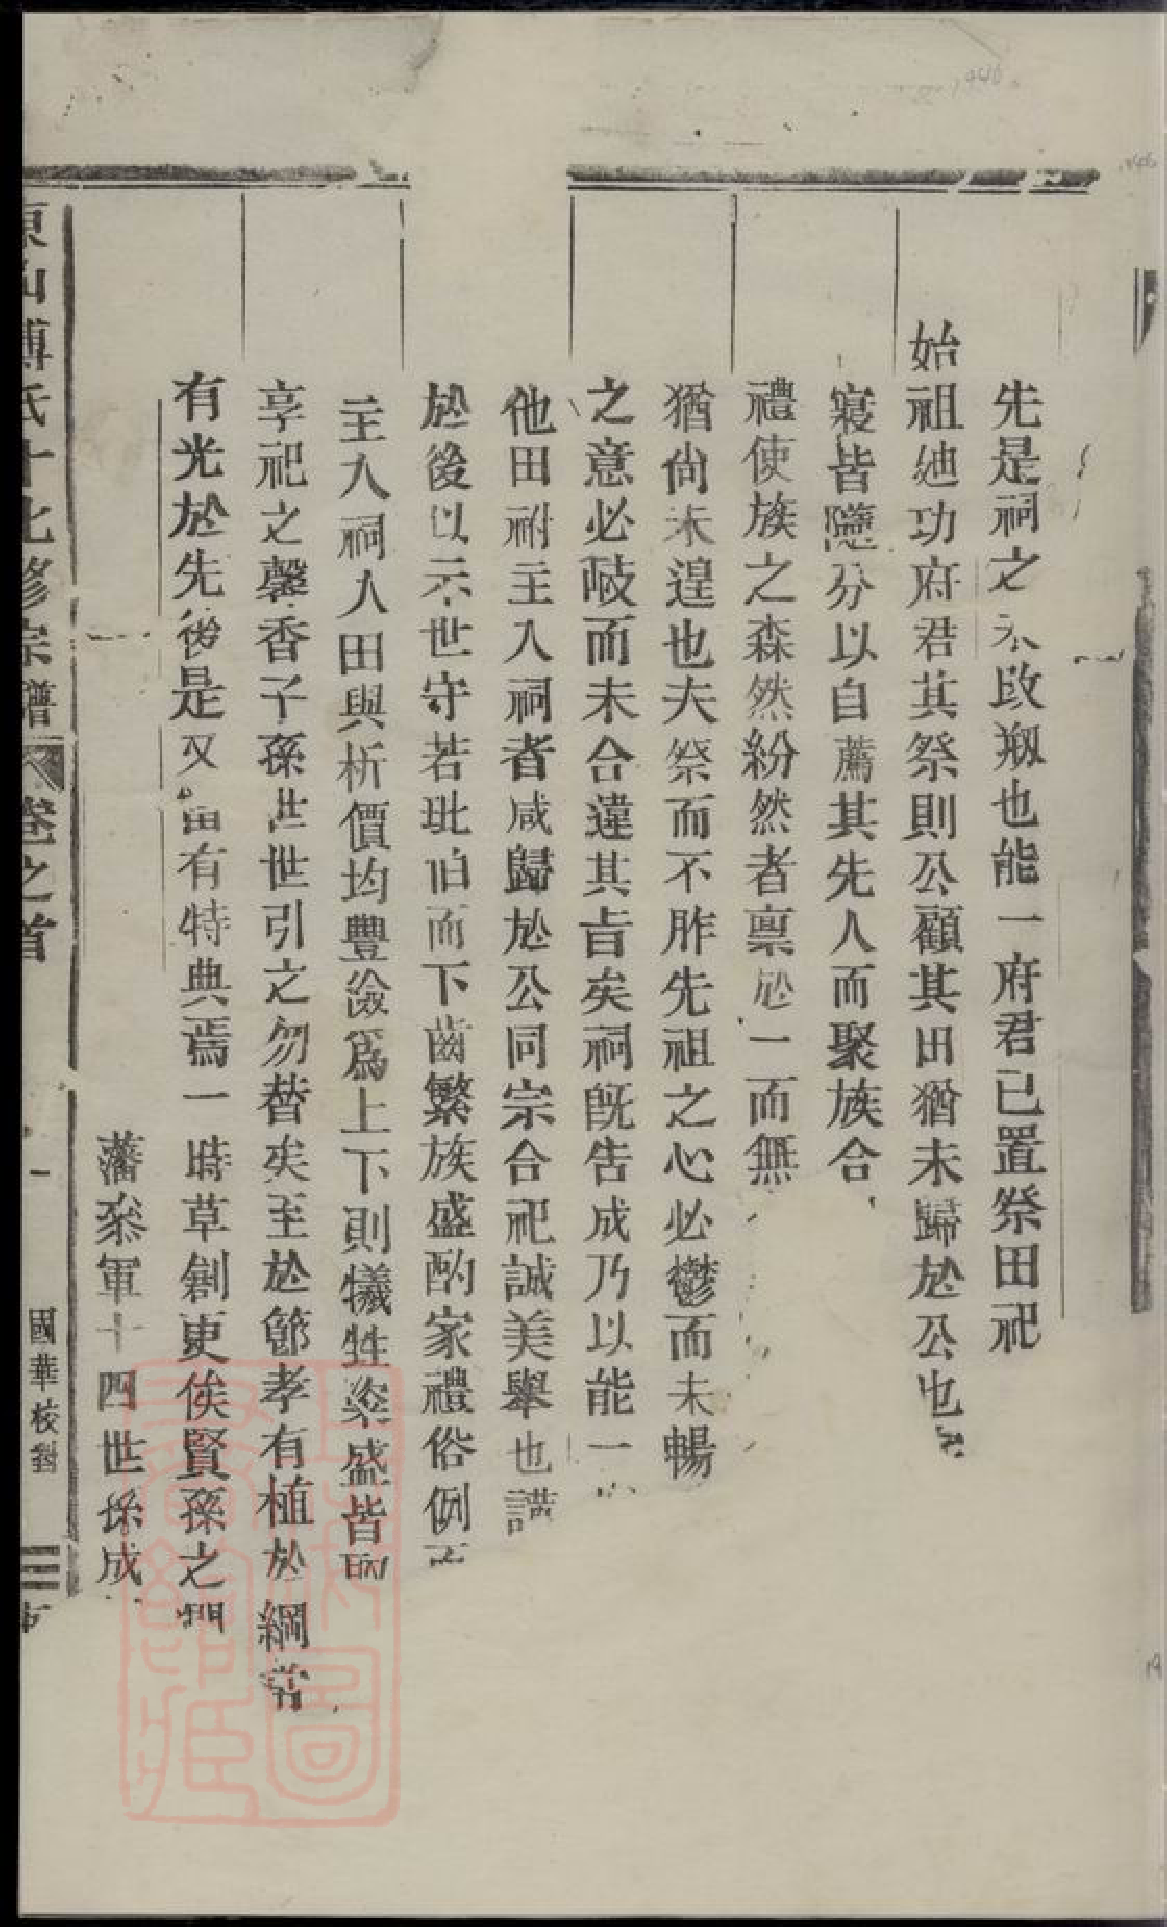 先是祠之未改剏也能一府君已置祭田祀
始祖廸功府君其祭則公顧其田猶未歸於公也
寢皆隱分以自薦其先人而聚族合
禮使族之森然紛然者禀於一而無
猶尚未遑也夫祭而不胙先祖之心必鬱而未暢
之意必歧而未合違其㫖矣祠旣告成乃以能一
他田祔主入祠者咸歸於公同宗合祀誠美舉也謹
於後以示世守若玭伯而下齒繁族盛酌家禮俗例
主入祠人田與析價均豐儉爲上下則犧牲粢盛皆
享祀之馨香子孫世世引之勿替矣至於節孝有植於綱常
有光於先後是又當有特典焉一時草創更俟賢孫之
藩叅軍十四世孫成
東山傅氏十七修宗譜 卷之首 一 國華校對